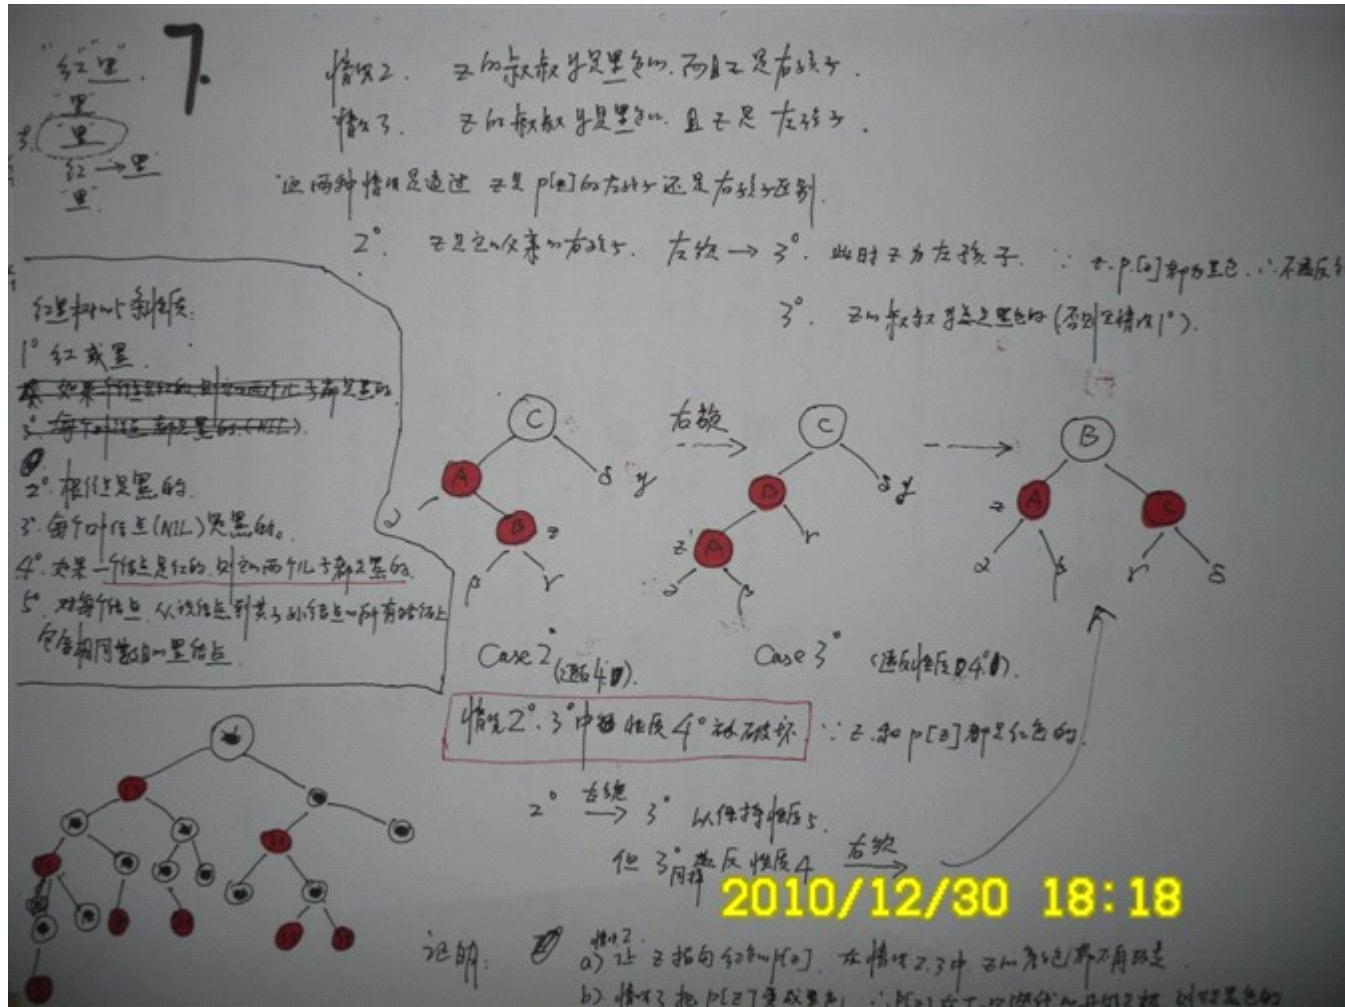 "红""黑".
7.
"黑"
黑
红→黑
黑.
情况2. z的叔叔y是黑色的.而且z是右孩子.
情况3. z的叔叔y是黑色的.且z是左孩子.
这两种情况是通过 z是p[z]的左孩子还是右孩子区别.
2°. z是它的父亲的右孩子. 左旋→3°. 此时z为左孩子. ∵ z.p[z]都为
3°. z的叔叔y总是黑色的(否则是情况1°).
红黑树的5条性质:
1° 红或黑.
如果一个结点是红的,则它的两个儿子都是黑的.
3° 每个叶结点都是黑的.(NIL).
2°. 根结点是黑的.
3°. 每个叶结点(NIL)是黑的。
4°. 如果一个结点是红的,则它的两个儿子都是黑的.
5°. 对每个结点.从该结点到其子孙结点的所有路径上
包含相同数目的黑结点.
C
A
B
z
α
β
γ
δ y
右旋
C
B
A
z
α
β
γ
δ y
B
A
C
z
α
β
γ
δ
Case 2°
(违反4°).
Case 3° (违反性质4°).
情况2°.3°中 性质4°被破坏. ∵ z.和p[z]都是红色的.
2° 左旋→ 3° 以保持性质5.
但3°同样违反性质4 右旋→
2010/12/30 18:18
证明:
情况2.
a) 让z指向红色的p[z]. 在情况2.3中. z的颜色都不再改变.
b) 情况3把p[z]变成黑色